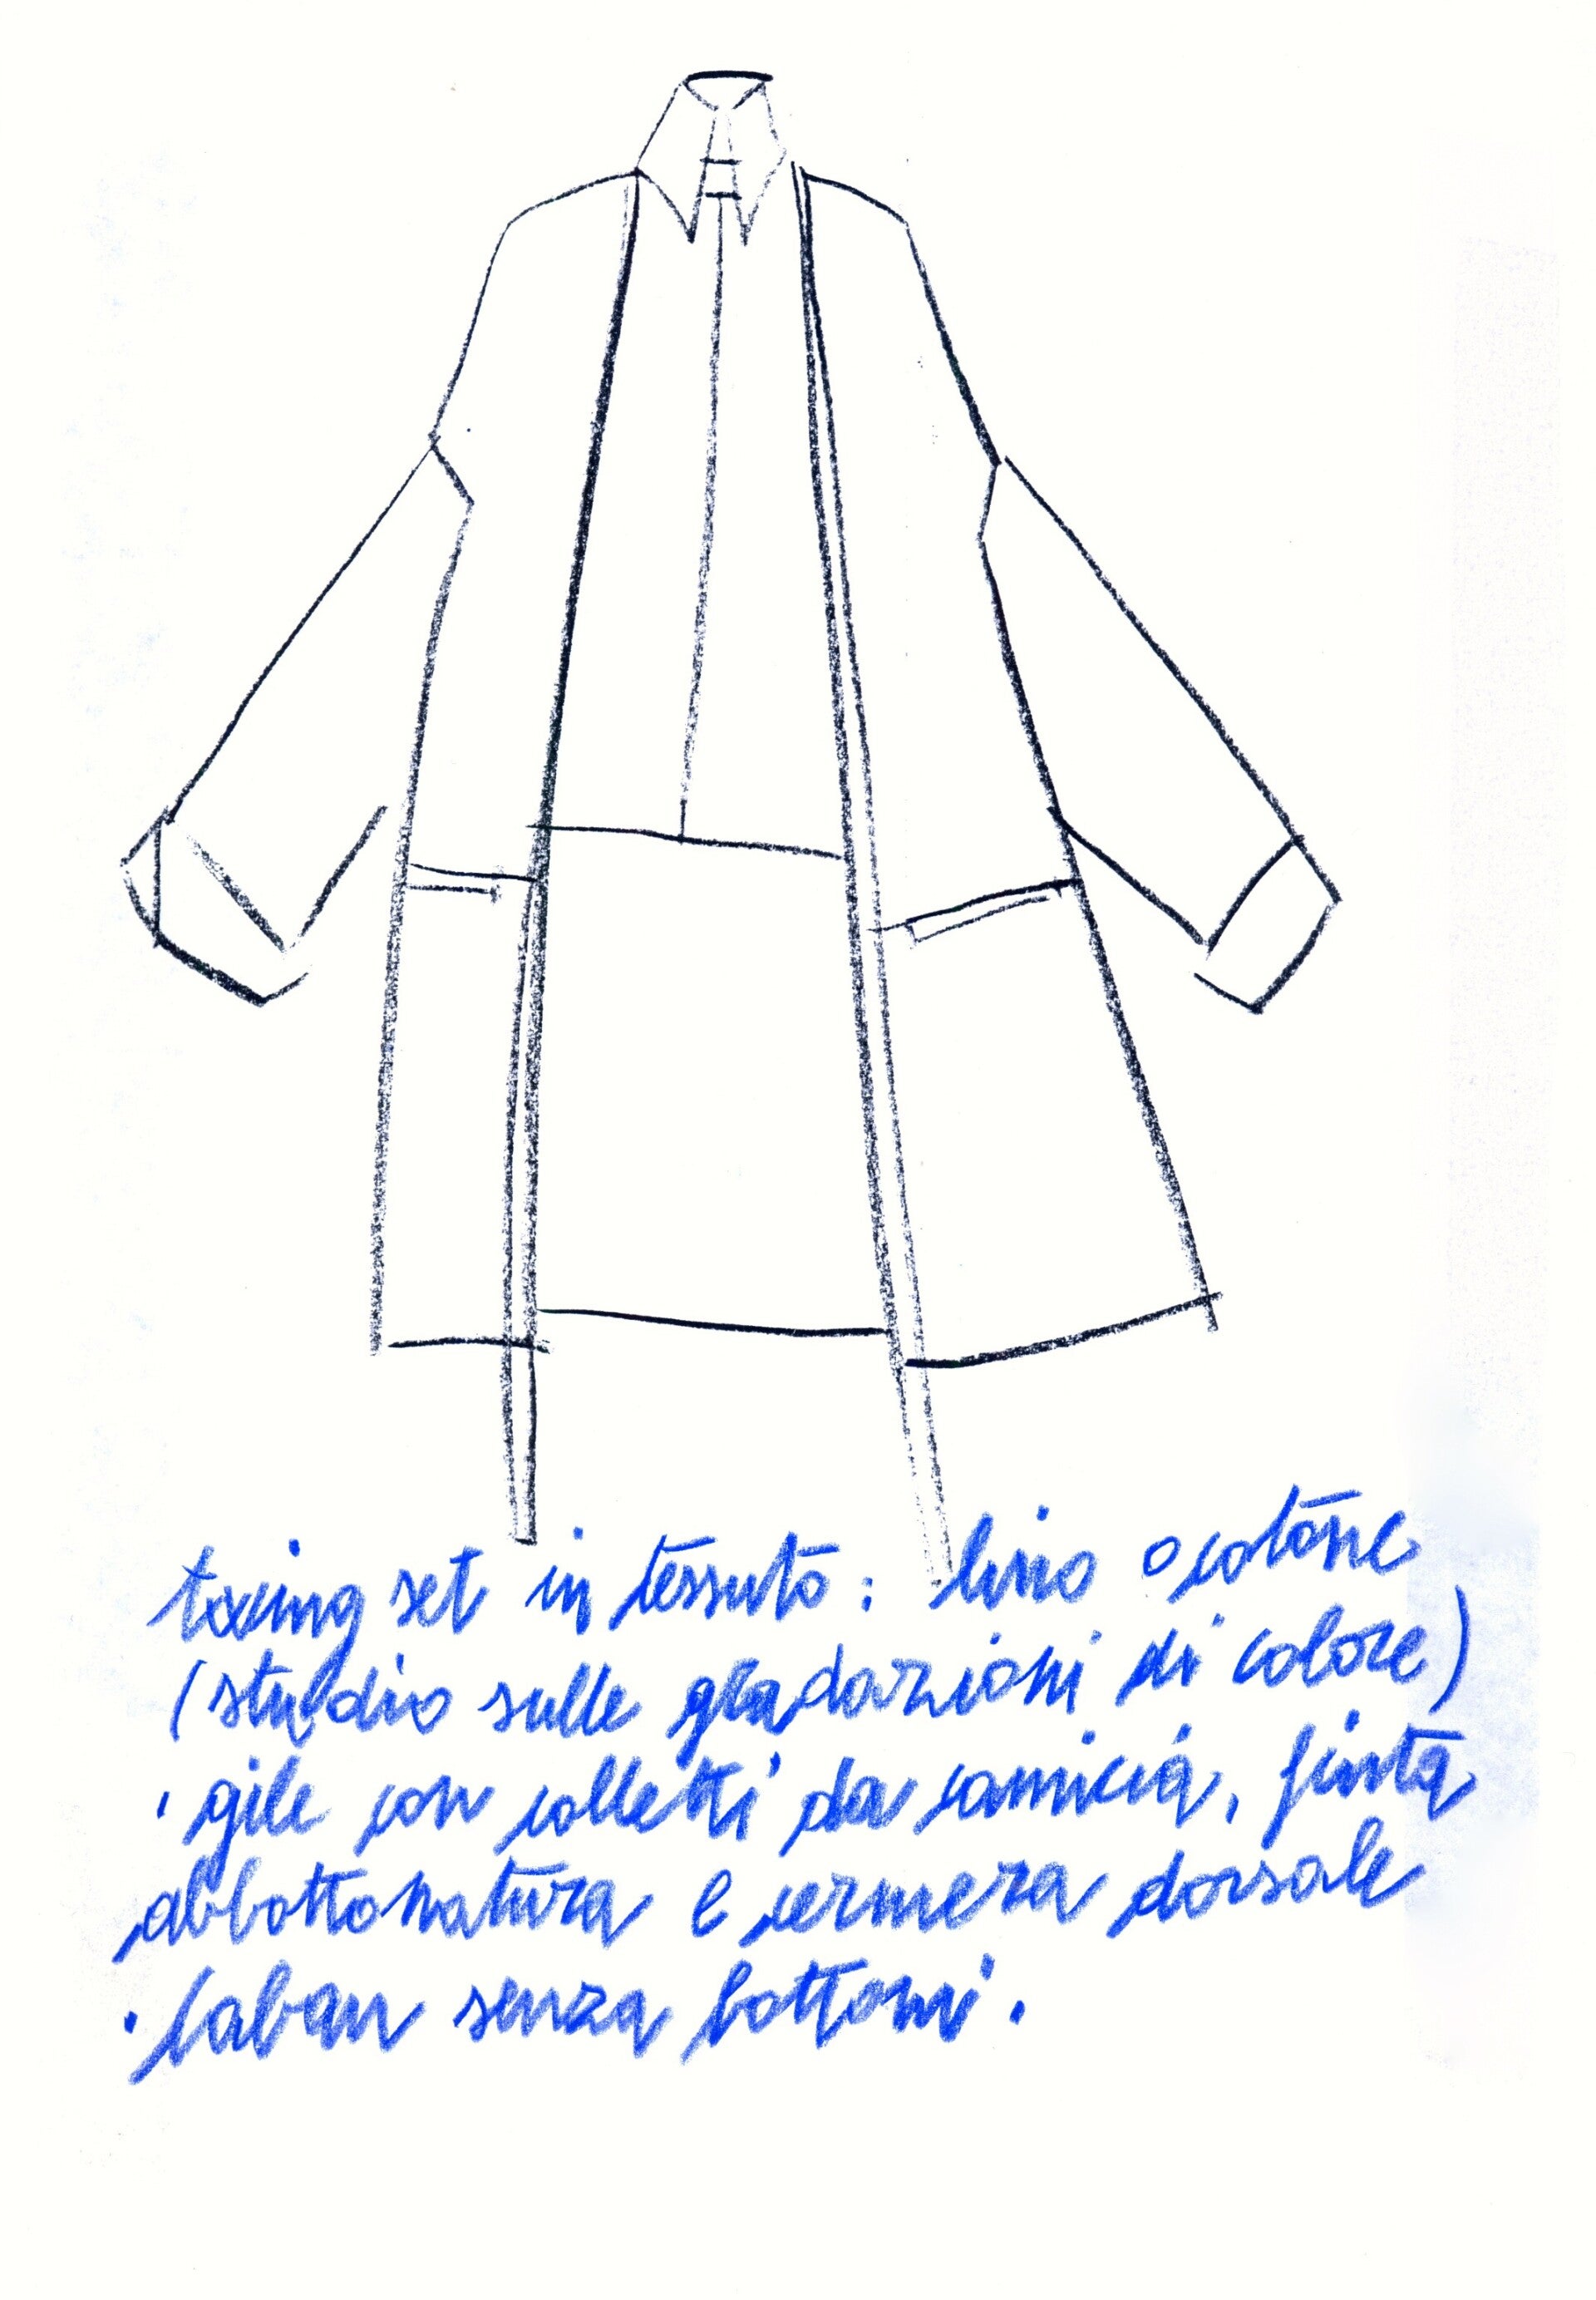 set in tessuto: lino o cotone
(studio sulle gradazioni di colore)
· gile con colletti da camicia, finta
abbottonatura e cerniera dorsale
· Caban senza bottoni.